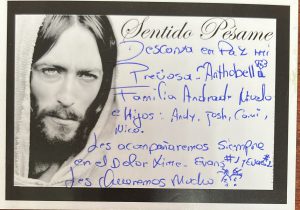 Sentido Pésame
Descansa en Paz mi
Preciosa Anthobella
Familia Andrade
e Hijos: Andy, Josh,
Nico.
Les acompañaremos Siempre
en el Dolor
Les Queremos Mucho